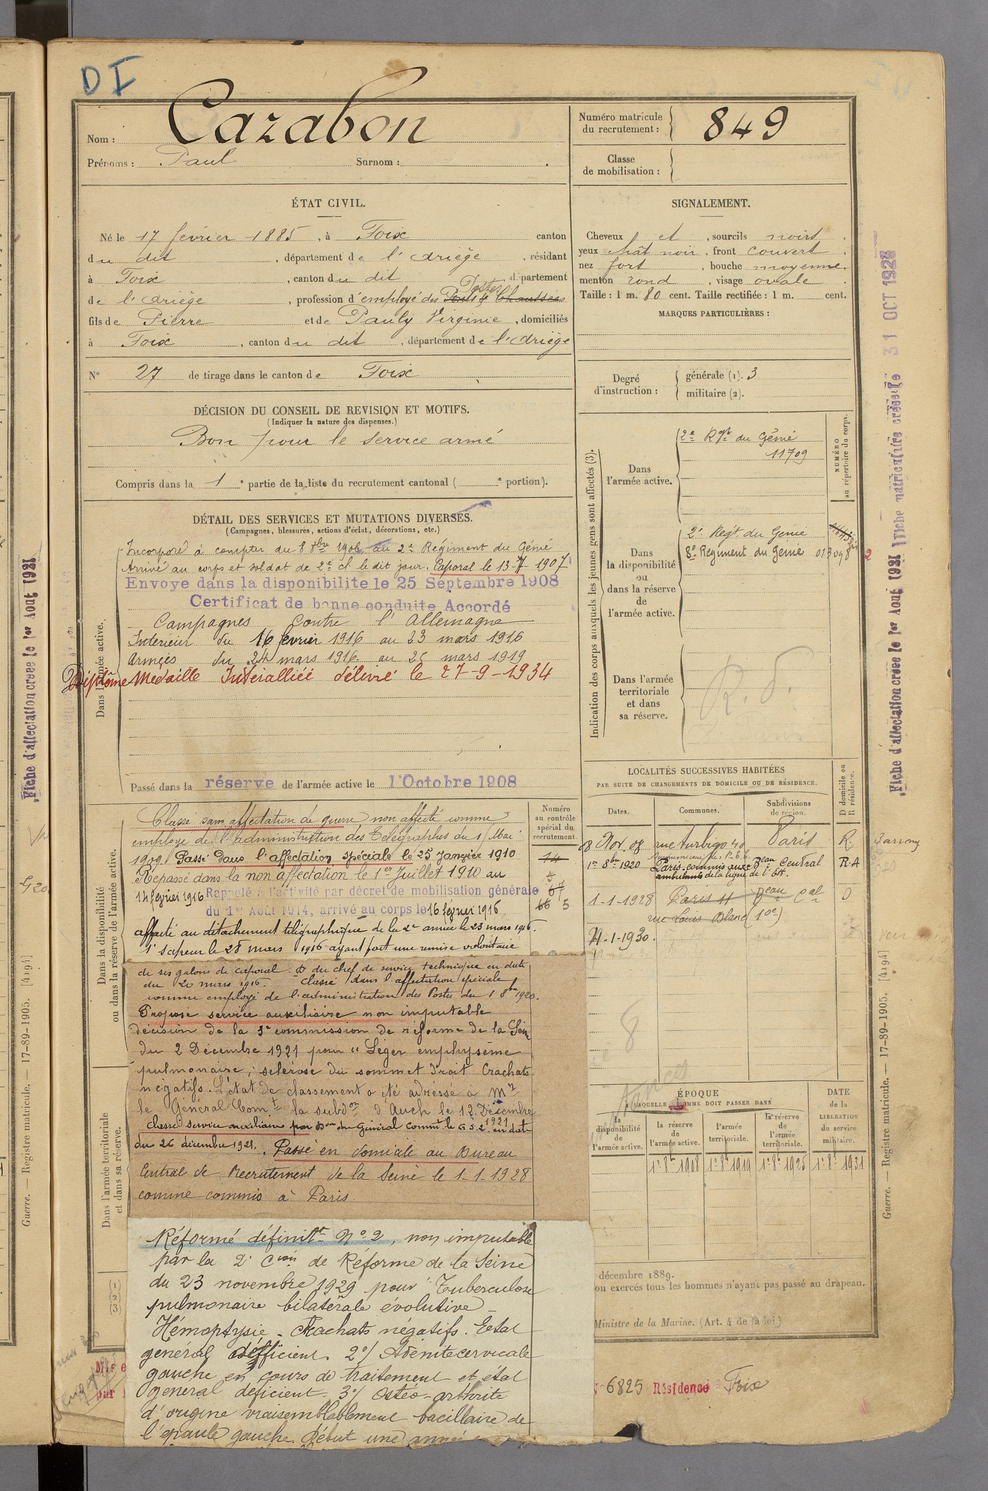 DI
Nom : Cazabon
Prénoms : Paul Surnom :
Numéro matricule du recrutement : 849
Classe de mobilisation :
ÉTAT CIVIL.
Né le 17 février 1885, à Foix canton
du dit, département de l'Ariège, résidant
à Foix, canton du dit département
de l'Ariège, profession d'employé des Postes
fils de Pierre et de Pauly Virginie, domiciliés
à Foix, canton du dit, département de l'Ariège
N° 27 de tirage dans le canton de Foix
SIGNALEMENT.
Cheveux et, sourcils noirs
yeux chât noir, front couvert
nez fort, bouche moyenne
menton rond, visage ovale
Taille : 1 m. 80 cent. Taille rectifiée : 1 m. cent.
MARQUES PARTICULIÈRES :
Degré d'instruction : générale (1). 3
militaire (2).
DÉCISION DU CONSEIL DE REVISION ET MOTIFS.
(Indiquer la nature des dispenses.)
Bon pour le service armé
Compris dans la 1e partie de la liste du recrutement cantonal ( e portion).
DÉTAIL DES SERVICES ET MUTATIONS DIVERSES.
(Campagnes, blessures, actions d'éclat, décorations, etc.)
Dans l'armée active.
Incorporé à compter du 8 8bre 1906 au 2e Régiment du Génie
Arrivé au corps et soldat de 2e cl le dit jour. Caporal le 13-7-1907.
Envoyé dans la disponibilité le 25 Septembre 1908
Certificat de bonne conduite Accordé
Campagnes Contre l'Allemagne
Intérieur du 16 février 1916 au 23 mars 1916
Armées du 24 mars 1916 au 25 mars 1919
Diplôme Médaille Interalliée délivré le 27-9-1934
Passé dans la réserve de l'armée active le 1 Octobre 1908
Indication des corps auxquels les jeunes gens sont affectés (3).
NUMÉRO au répertoire du corps.
Dans l'armée active.
2e Rgt du Génie
11709
Dans la disponibilité ou dans la réserve de l'armée active.
2e Regt du Génie
8e Régiment du Génie
Dans l'armée territoriale et dans sa réserve.
LOCALITÉS SUCCESSIVES HABITÉES
PAR SUITE DE CHANGEMENTS DE DOMICILE OU DE RÉSIDENCE.
Dates. Communes. Subdivisions de région. D domicile ou R résidence.
8 Nov. 08 rue Turbigo 40 Paris R
1er 8e 1920 Paris, commis aux ambulants de la ligne de l'Est. Beau Central RA
1-1-1928 Paris 11 Beau Cal D
rue Louis Blanc (10e)
4-1-1930.
Dans la disponibilité ou dans la réserve de l'armée active.
Numéro au contrôle spécial du recrutement.
Classé sans affectation de guerre non affecté comme
employé de l'administration des Télégraphes du 1 Mai
1909. Passé dans l'affectation spéciale le 25 Janvier 1910
Repassé dans la non affectation le 1er Juillet 1910 au
14 février 1916 Rappelé à l'activité par décret de mobilisation générale
du 1er Août 1914, arrivé au corps le 16 février 1916
affecté au détachement télégraphique de la 2e armée le 23 mars 1916.
1er sapeur le 25 mars 1916 ayant fait une remise volontaire
de ses galons de caporal et du chef de service technique en date
du 20 mars 1916. Classé dans l'affectation spéciale
comme employé de l'administration des Postes du 1 8bre 1920.
Proposé service auxiliaire non imputable
décision de la 3e commission de réforme de la Seine
du 2 Décembre 1921 pour "Léger emphysème
pulmonaire, sclérose du sommet droit Crachats
négatifs. L'état de classement a été adressé à Mr
le Général Comt la subdon d'Auch le 12 Décembre
1921
Classé service auxiliaire par Don du Général Commt le G.S.2 en date
du 26 décembre 1921. Passé en domicile au Bureau
Central de Recrutement de la Seine le 1-1-1928
comme commis à Paris
Dans l'armée territoriale et dans sa réserve.
Réformé définitt N° 2, non imputable
par la 2e Cion de Réforme de la Seine
du 23 novembre 1929 pour "Tuberculose
pulmonaire bilatérale évolutive -
Hémoptysie - Crachats négatifs. Etat
général déficient. 2°/ Adénite cervicale
gauche en cours de traitement et état
général déficient - 3°/ Ostéo-arthrite
d'origine vraisemblablement bacillaire de
l'épaule gauche. Début une année
ÉPOQUE
À LAQUELLE L'HOMME DOIT PASSER DANS
DATE de la LIBÉRATION du service militaire.
la disponibilité de l'armée active.
la réserve de l'armée active.
l'armée territoriale.
la réserve de l'armée territoriale.
1er 8e 1908 1er 8e 1919 1er 8e 1925 1er 8e 1931
décembre 1889.
on exercés tous les hommes n'ayant pas passé au drapeau.
Ministre de la Marine. (Art. 4 de la loi)
6825 Résidence Foix
Fiche d'affectation créée le 1er Août 1921
Fiche matriculaire créée le 31 OCT 1927
Guerre. — Registre matricule. — 17-89-1905. [4194]